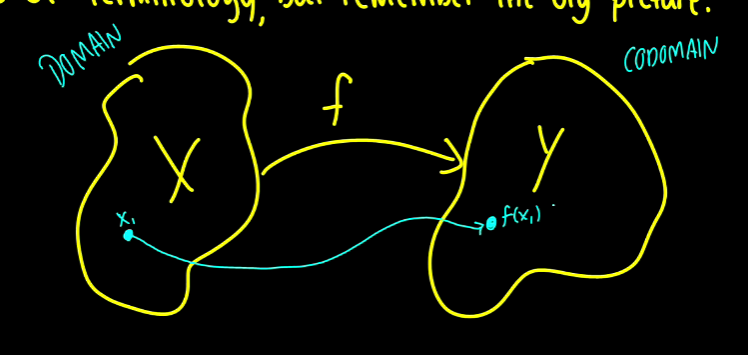 of terminology, but remember the big picture.
DOMAIN
CODOMAIN
f
X
Y
x₁
f(x₁)